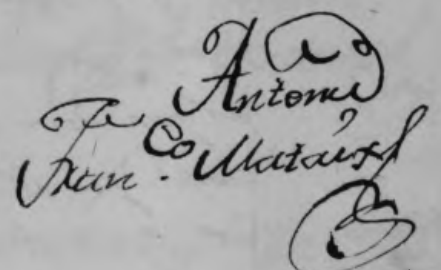 Antonio
Fran.co Mataix